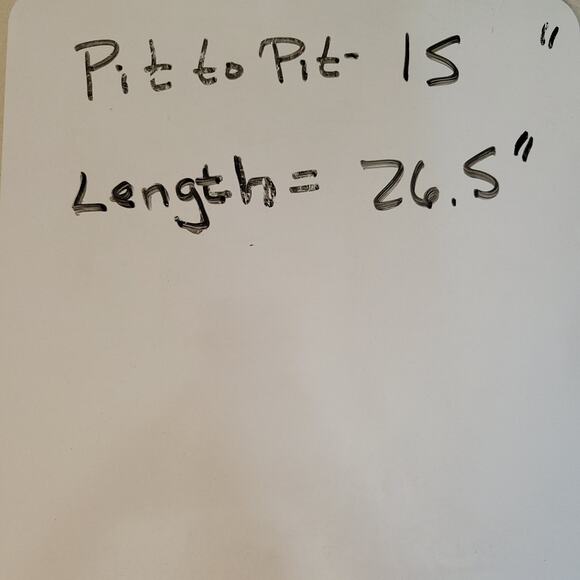 Pit to Pit- 15 "
Length = 26.5"